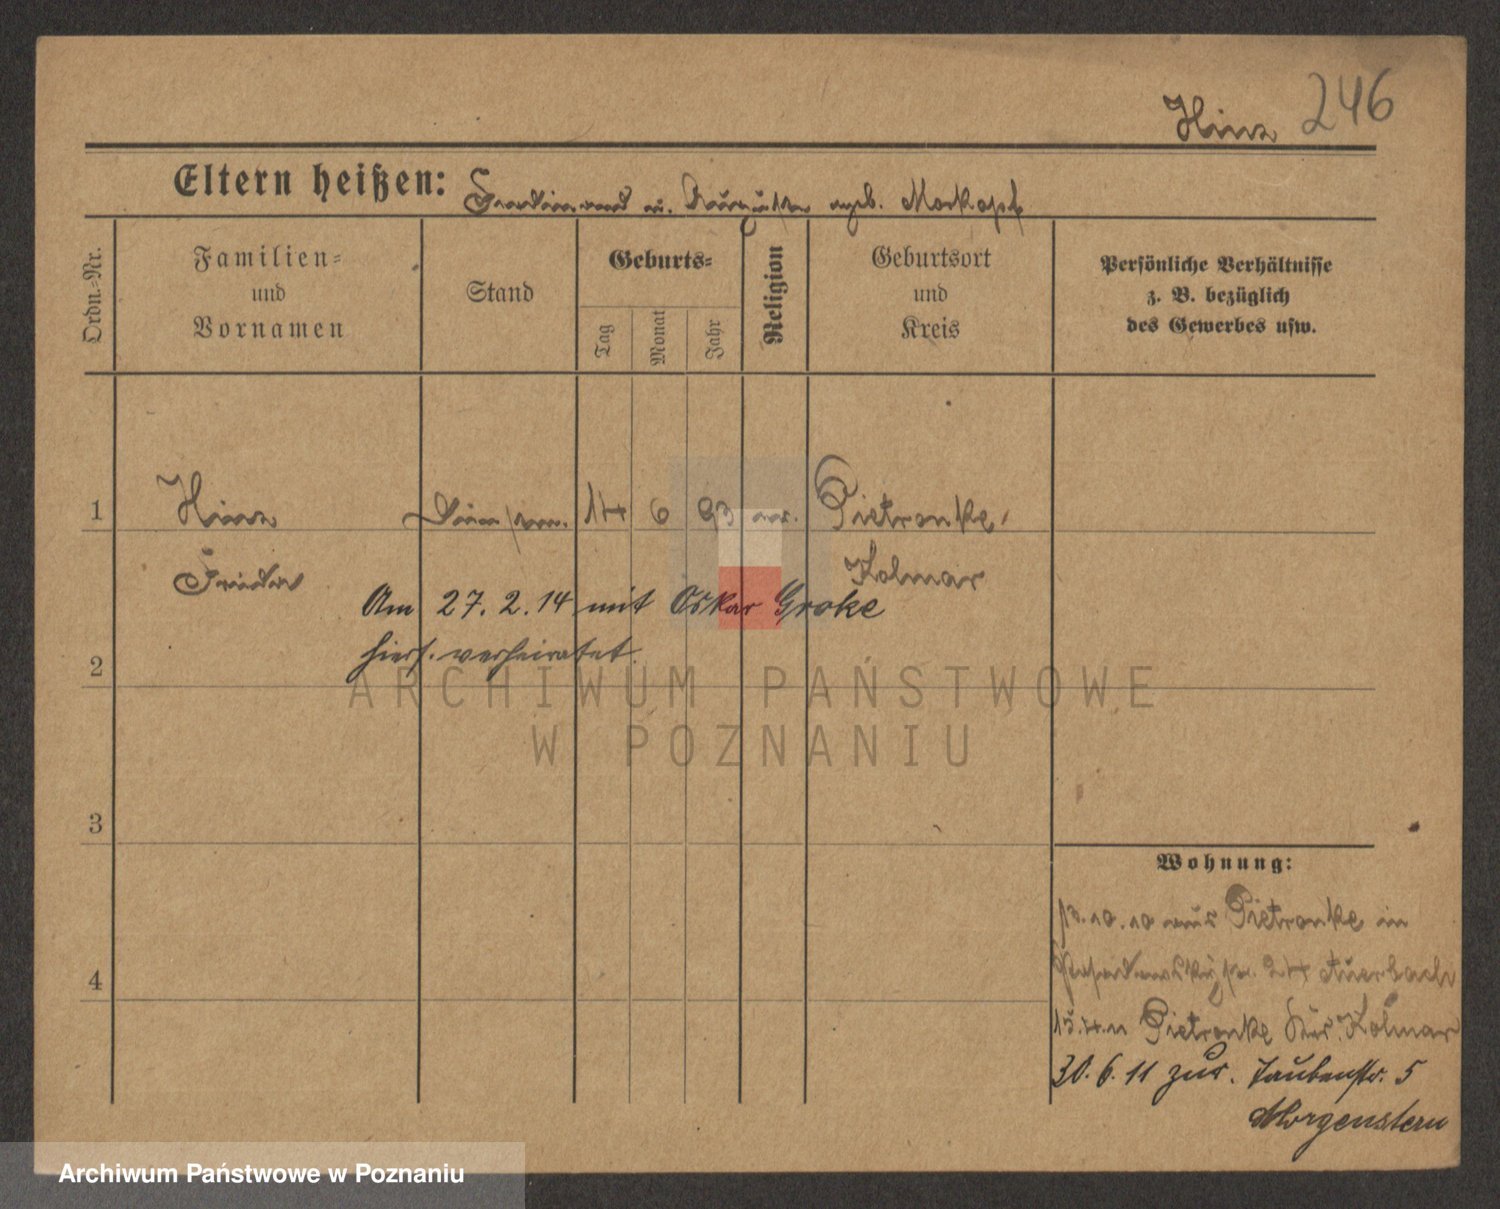 Hinz 246
Eltern heißen: Ferdinand u. Auguste geb. Morkopf
Ordn.=Nr.
Familien=
und
Vornamen
Stand
Geburts=
Tag
Monat
Jahr
Religion
Geburtsort
und
Kreis
Persönliche Verhältnisse
z. B. bezüglich
des Gewerbes usw.
1 Hinz 14 6 93 Pietronke,
Frieda Kolmar
Am 27. 2. 14 mit Oskar Grake
hiers. verheiratet.
2
3
4
Wohnung:
13.10.10 aus Pietronke in
24 Auerbach
15.4.11 Pietronke Kr. Kolmar
30.6.11 zur. Taubenstr. 5
Morgenstern
ARCHIWUM PAŃSTWOWE
W POZNANIU
Archiwum Państwowe w Poznaniu